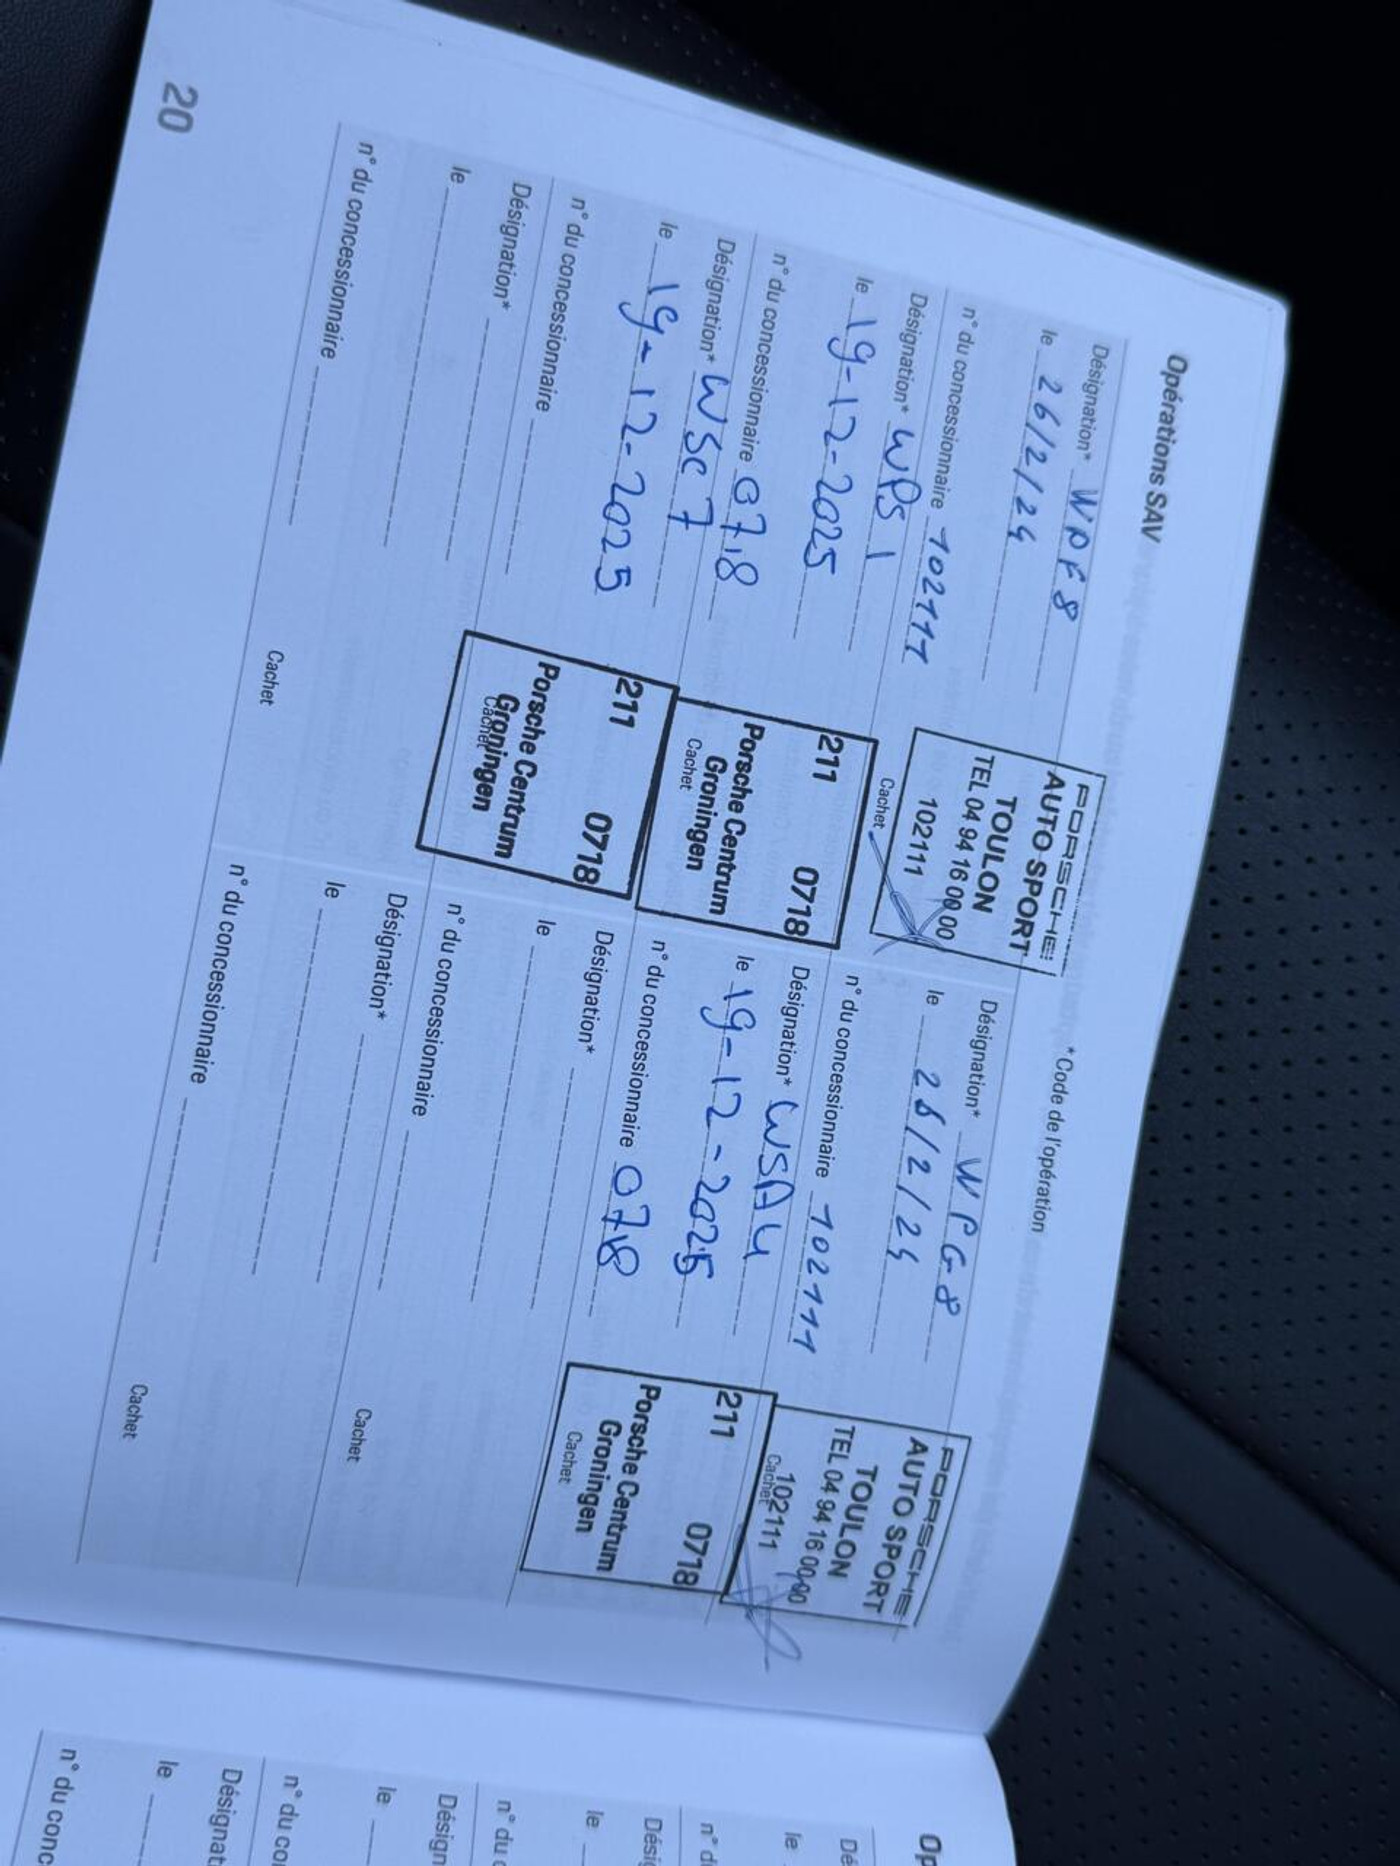 Opérations SAV
*Code de l'opération
Désignation* WPF8
le 26/2/24
n° du concessionnaire 102111
PORSCHE
AUTO SPORT
TOULON
TEL 04 94 16 00 00
102111
Cachet
Désignation* WPG8
le 26/2/24
n° du concessionnaire 102111
PORSCHE
AUTO SPORT
TOULON
TEL 04 94 16 00 00
102111
Cachet
Désignation* WPS1
le 19-12-2025
n° du concessionnaire 0718
211 0718
Porsche Centrum
Groningen
Cachet
Désignation* WSA4
le 19-12-2025
n° du concessionnaire 0718
211 0718
Porsche Centrum
Groningen
Cachet
Désignation* WSC7
le 19-12-2025
n° du concessionnaire
211 0718
Porsche Centrum
Groningen
Cachet
Désignation*
le
n° du concessionnaire
Cachet
Désignation*
le
n° du concessionnaire
Cachet
Désignation*
le
n° du concessionnaire
Cachet
20
Op
Dé
le
n° d
Dési
le
n° du
Désign
le
n° du co
Désignat
le
n° du conc